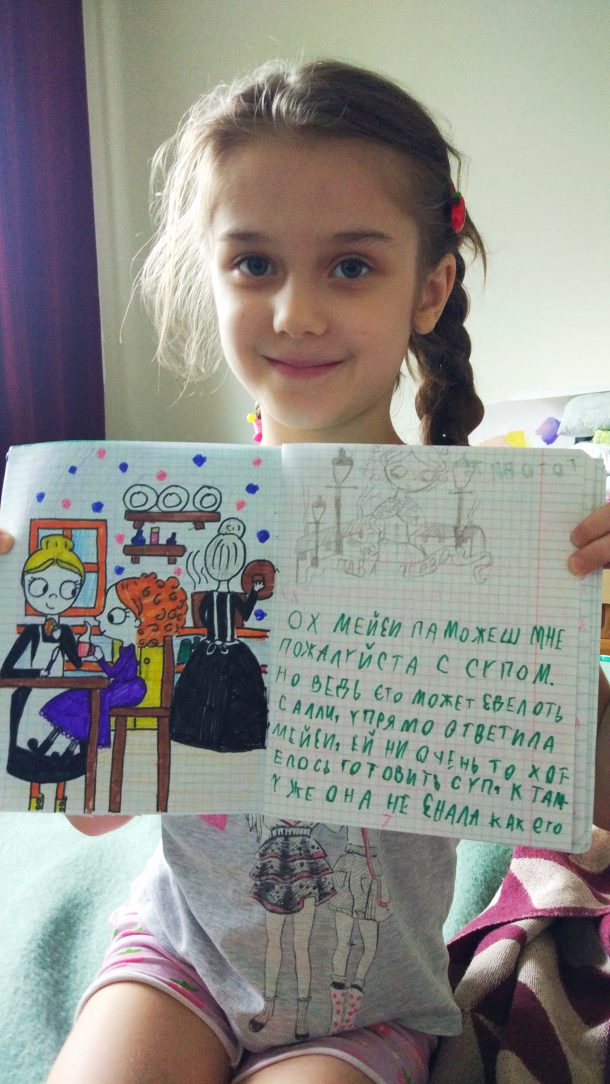 ОХ МЕЙЗИ ПАМОЖЕШ МНЕ
ПОЖАЛУЙСТА С СУПОМ.
НО ВЕДЬ ЭТО МОЖЕТ ЗДЕЛОТЬ
САЛЛИ, УПРЯМО ОТВЕТИЛА
МЕЙЗИ, ЕЙ НИ ОЧЕНЬ ТО ХОТ-
ЕЛОСЬ ГОТОВИТЬ СУП, К ТАМ
У ЖЕ ОНА НЕ ЗНАЛА КАК ЭТО